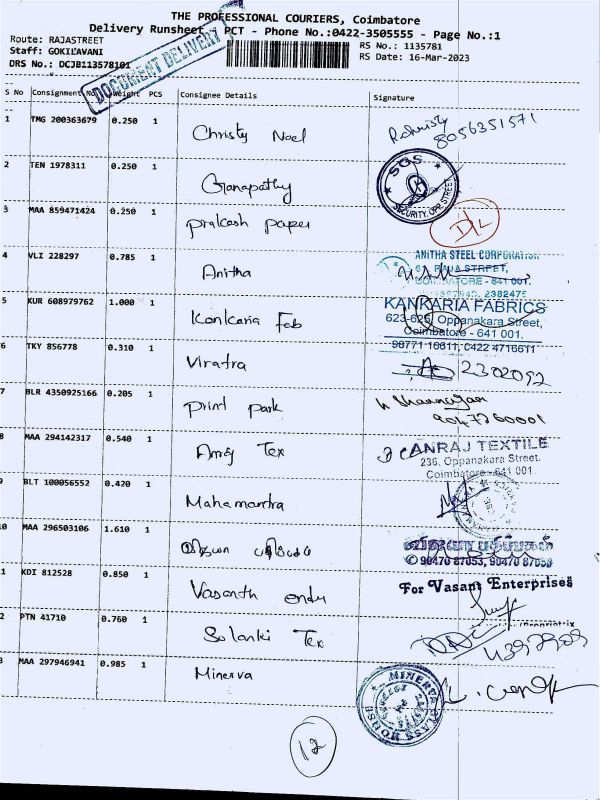 THE PROFESSIONAL COURIERS, Coimbatore
Delivery Runsheet PCT - Phone No.:0422-3505555 - Page No.:1
Route: RAJASTREET
Staff: GOKILAVANI
DRS No.: DCJB113578101
RS No.: 1135781
RS Date: 16-Mar-2023
DOCUMENT DELIVERY
S No Consignment No Weight PCS Consignee Details Signature
1 TMG 200363679 0.250 1 Christy Noel
8056351571
2 TEN 1978311 0.250 1 Ganapathy
SGS
SECURITY, OPP. STREET
3 MAA 859471424 0.250 1 prakash paper
D/L
4 VLI 228297 0.785 1 Anitha
ANITHA STEEL CORPORATION
RAJA STREET,
COIMBATORE - 641 001.
5 KUR 608979762 1.000 1 Kankaria Fab
KANKARIA FABRICS
623-625, Oppanakara Street,
Coimbatore - 641 001.
98771 16611, 0422 4716611
6 TKY 856778 0.310 1 Viratra
2302092
7 BLR 4350925166 0.205 1 print park
8 MAA 294142317 0.540 1 Amg Tex
ANRAJ TEXTILE
236, Oppanakara Street.
Coimbatore - 641 001.
9 BLT 100056552 0.420 1 Mahamantra
10 MAA 296503106 1.610 1
90470 87053, 90470 87053
11 KDI 812528 0.850 1 Vasanth
For Vasant Enterprises
12 PTN 41710 0.760 1 Solanki Tex
13 MAA 297946941 0.985 1 Minerva
MINERVA GLASS HOUSE
12